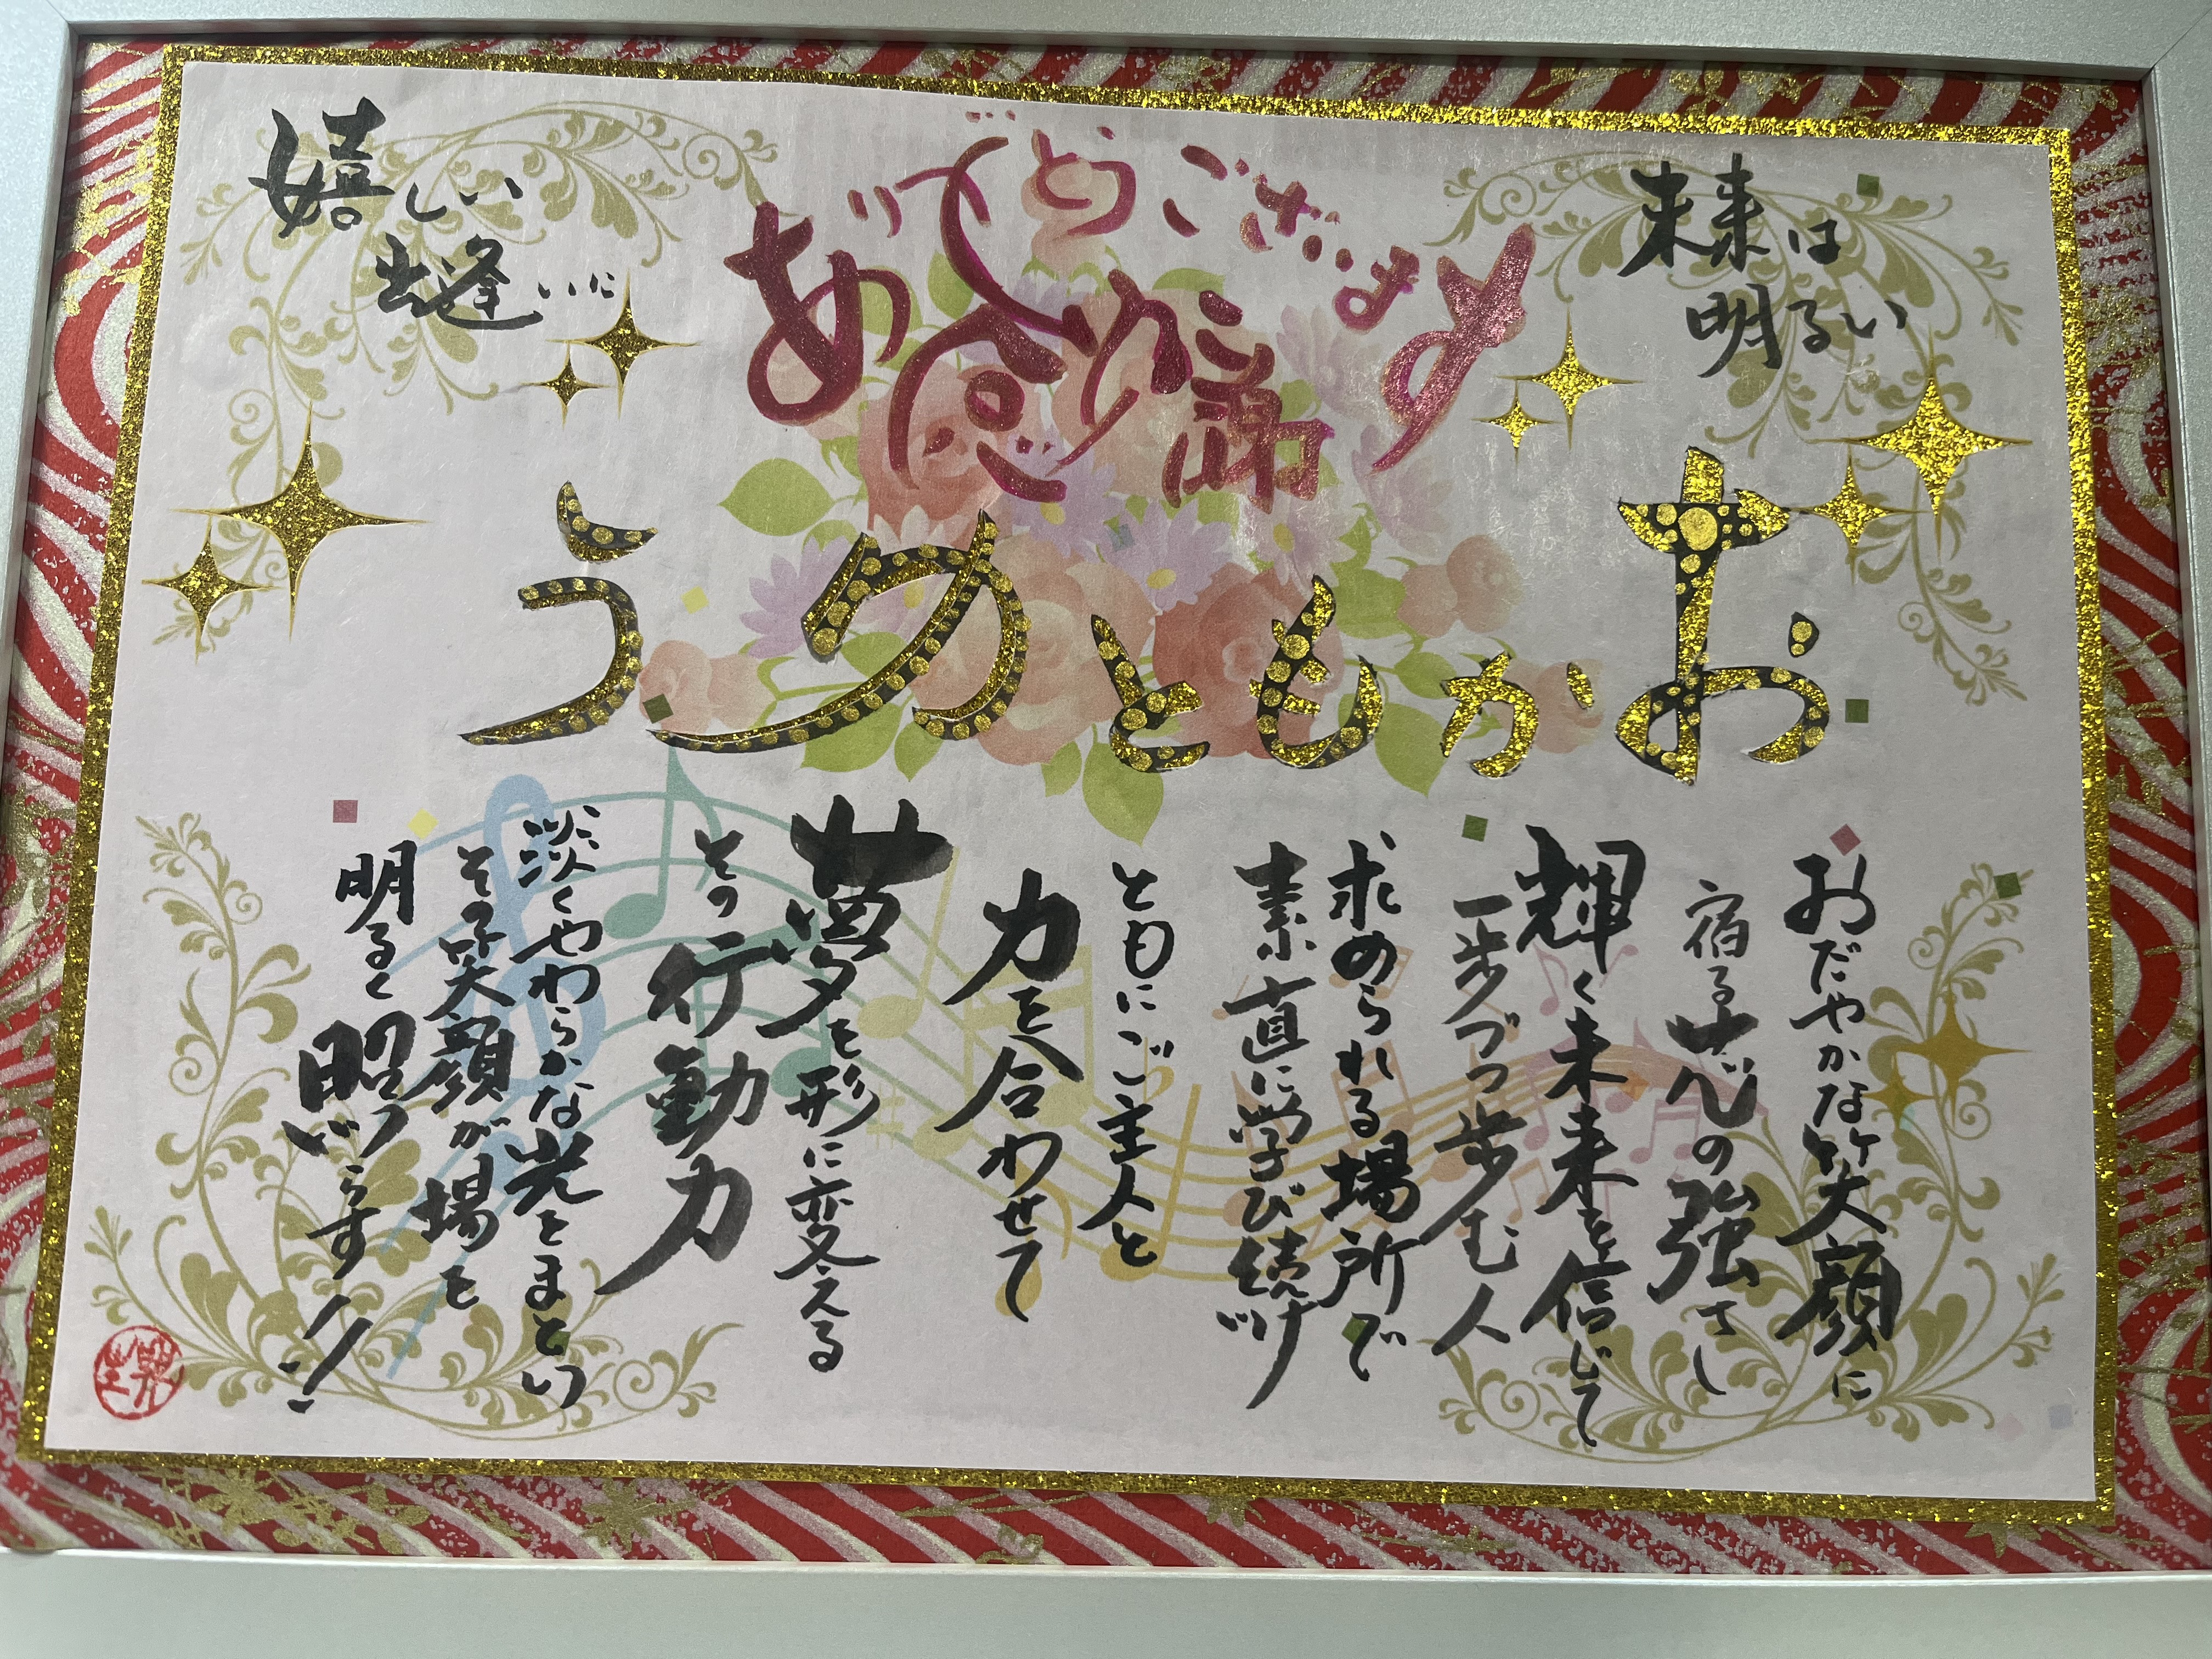 未来は
明るい
ありがとうございます
感謝
嬉しい
出逢いに
おかもとゆう
おだやかな笑顔に
宿る芯の強さ
輝く未来を信じて
一歩づつ歩む人
求められる場所で
素直に学び続け
ともにご主人と
力を合わせて
夢を形に変える
その行動力
淡くやわらかな光をまとい
その笑顔が場を
明るく照らす!!